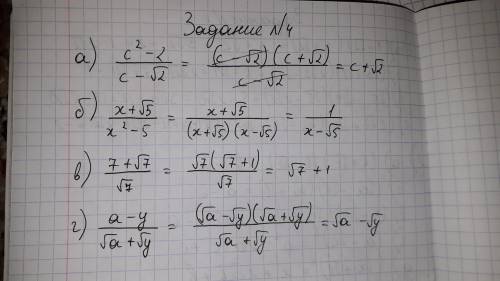 Задание №4
а) (c² - 2)/(c - √2) = ((c - √2)(c + √2))/(c - √2) = c + √2
б) (x + √5)/(x² - 5) = (x + √5)/((x + √5)(x - √5)) = 1/(x - √5)
в) (7 + √7)/√7 = (√7(√7 + 1))/√7 = √7 + 1
г) (a - y)/(√a + √y) = ((√a - √y)(√a + √y))/(√a + √y) = √a - √y